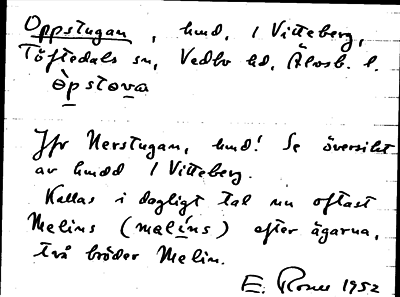 Oppstugan, hmd, i Vitteberg,
Töftedals sn, Vedbo hd, Älvsb. l.
òpstova
Jfr Nerstugan, hmd! Se översikt
av hmdd i Vitteberg.
Kallas i dagligt tal nu oftast
Melins (malíns) efter ägarna,
två bröder Melin.
E. 1952